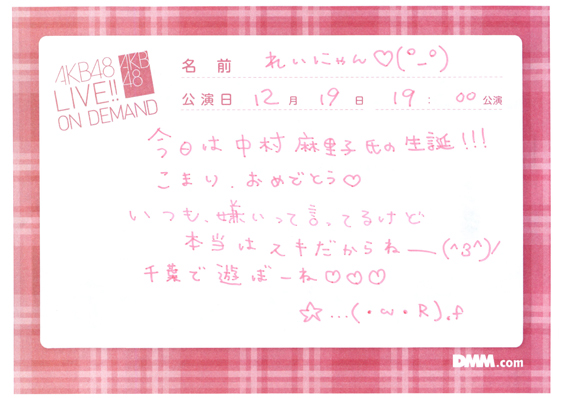 AKB48
LIVE!!
ON DEMAND
AKB
48
名前 れいにゃん♡(°_°)
公演日 12月19日 19:00公演
今日は中村麻里子氏の生誕!!!
こまり、おめでとう♡
いつも、嫌いって言ってるけど
本当はスキだからねー(^3^)/
千葉で遊ぼーね♡♡♡
☆...(・ω・R).f
DMM.com